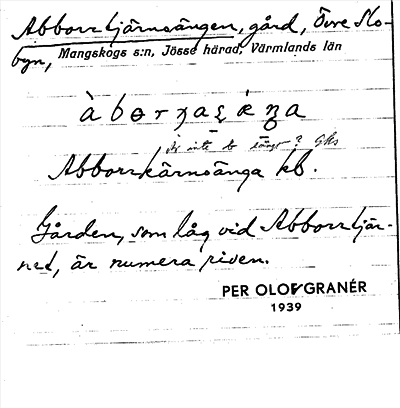 Abborrtjärnsängen, gård, Övre Slo-
byn, Mangskogs s:n, Jösse härad, Värmlands län
Är inte b långt? Gks
Abborrkärnsänga kb.
Gården, som låg vid Abborrtjär-
net, är numera riven.
PER OLOF GRANÉR
1939